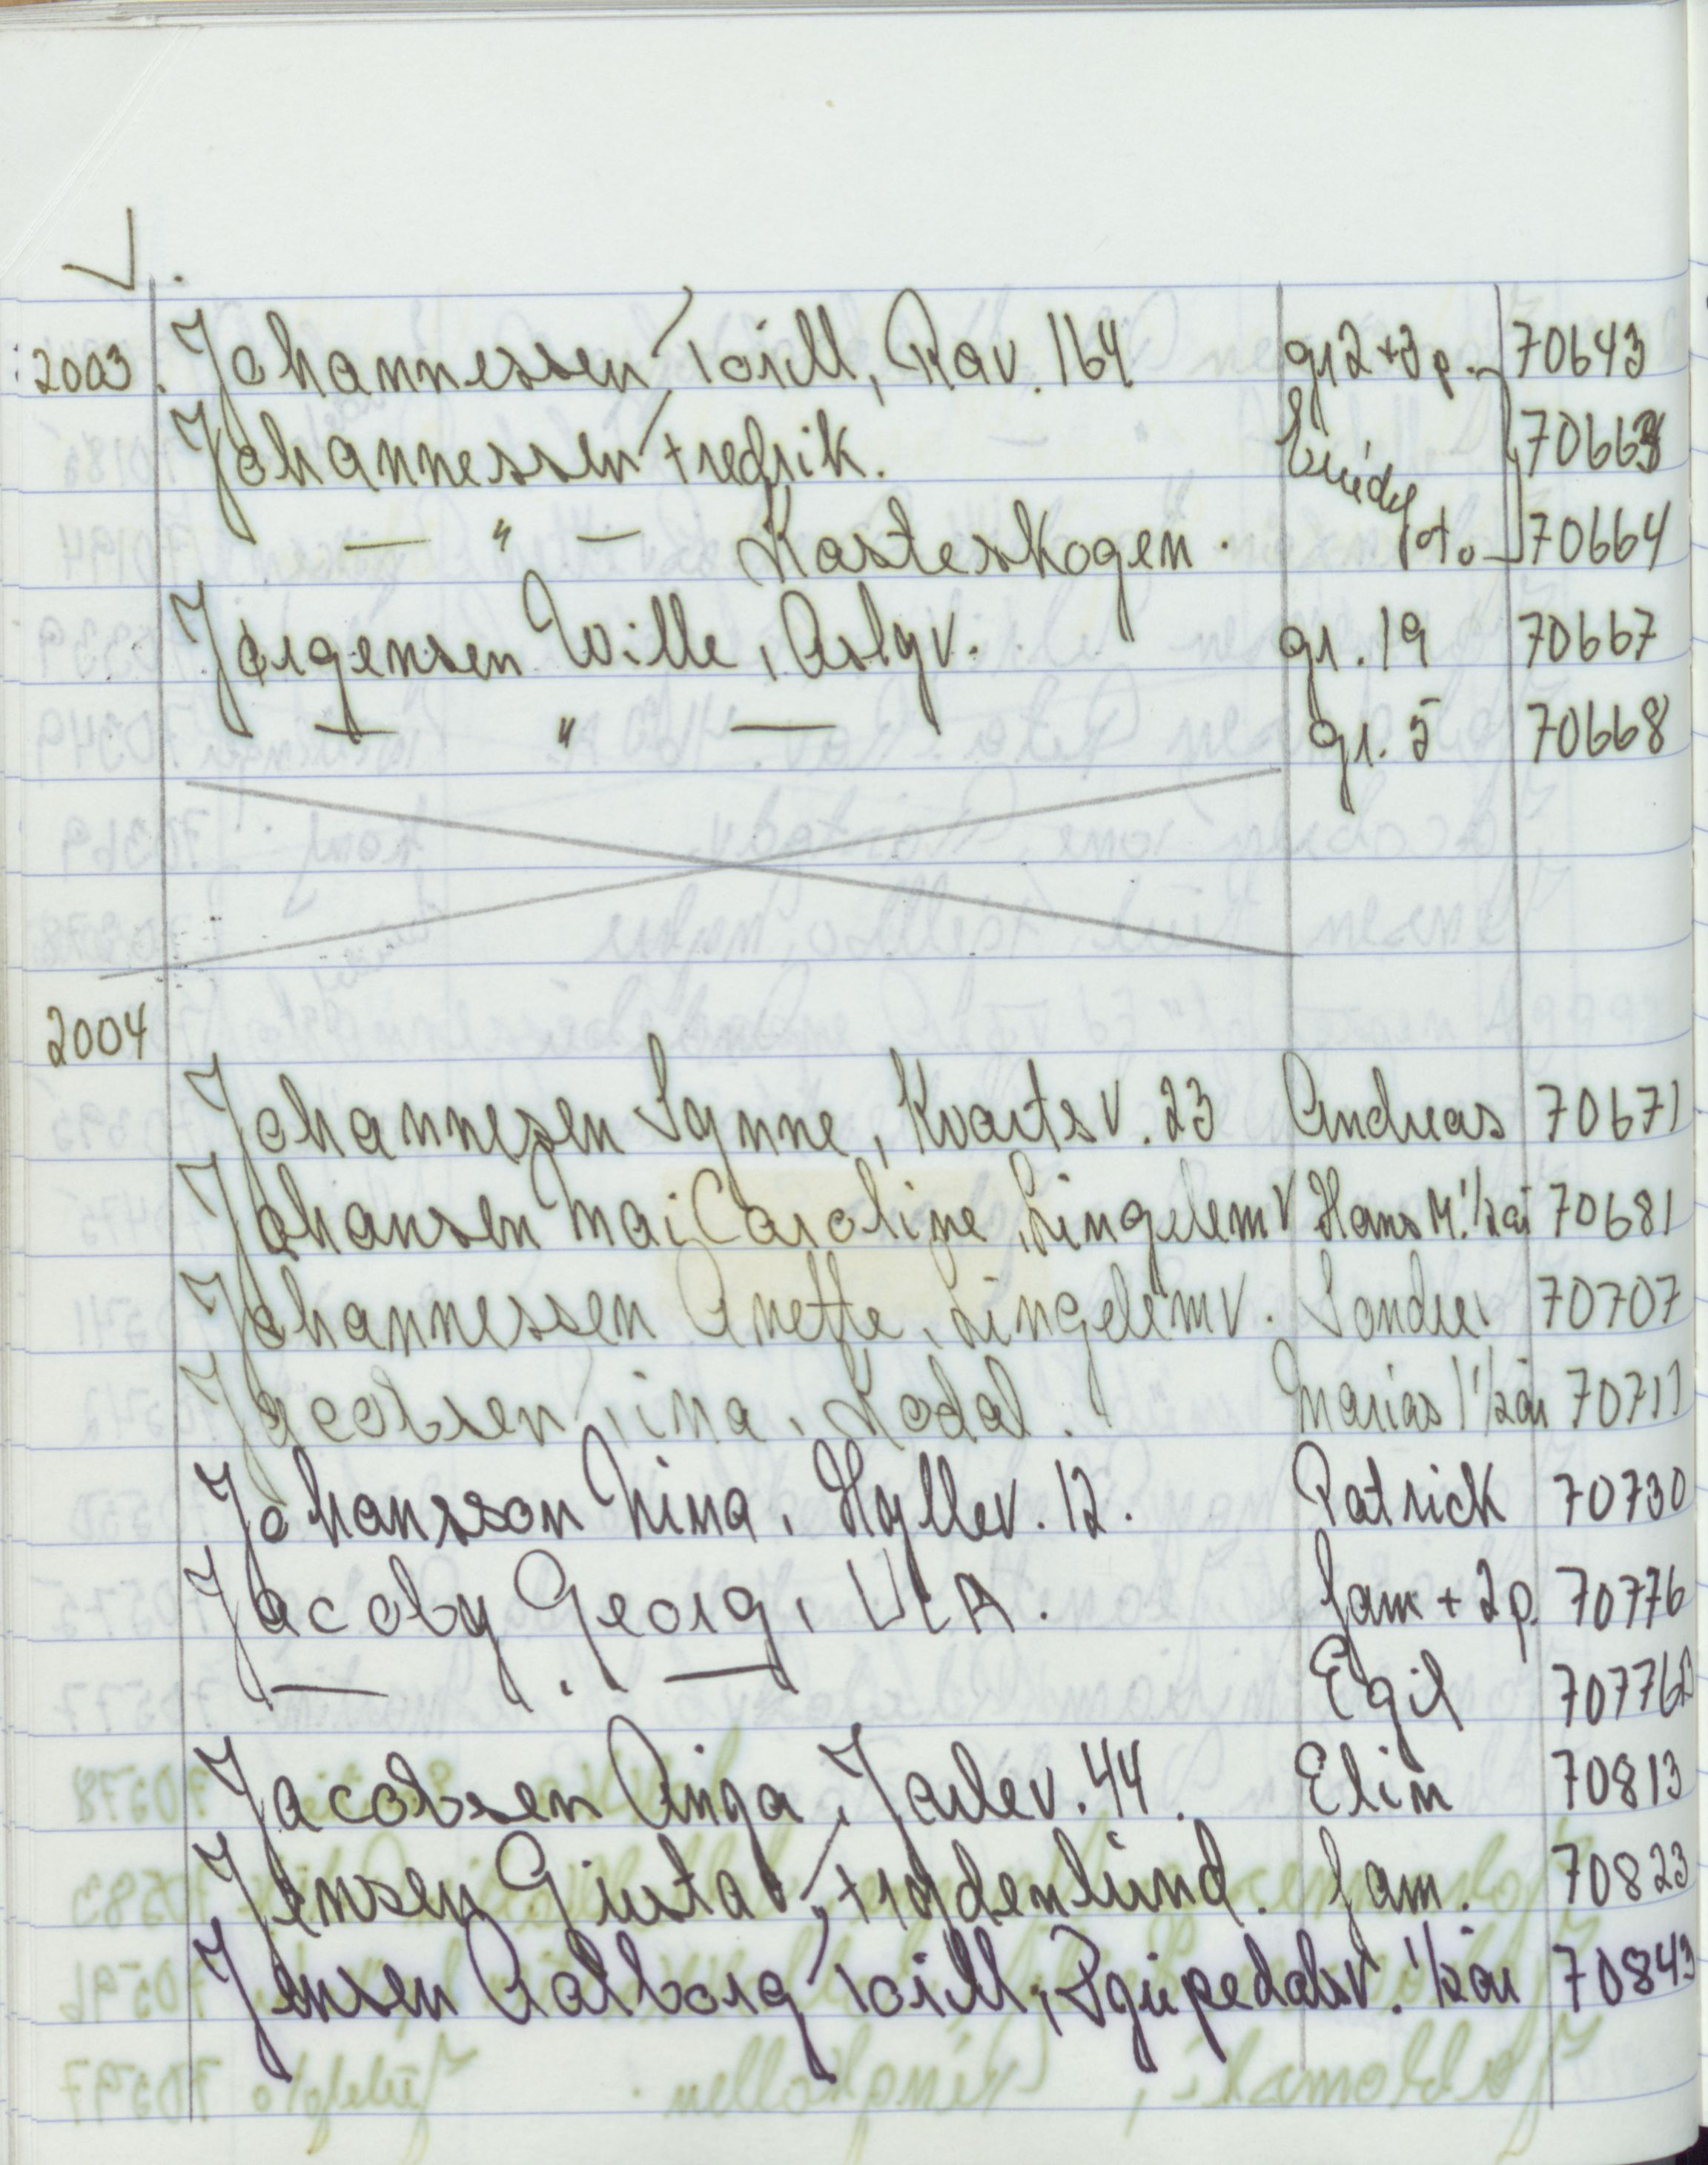 J.
2003. Johannessen Torill, Rav. 164 gr 2+2 p. 70643
Johannessen Fredrik. Brude 70663
— " — Kasteskogen. foto 70664
Jørgensen Wille, Aslyv. gr. 19 70667
— " — gr. 5 70668
2004
Johannesen Synne, Kvartsv. 23 Andreas 70671
Johansen Mai Caroline, Lingelemv Hans M. 1/2 år 70681
Johannessen Anette, Lingelemv. Sondre 70707
Jacobsen Tina, Kodal. Marias 1 1/2 år 70711
Johansson Nina, Hyllev. 12. Patrick 70730
Jacoby Georg, USA. fam + 2 p. 70776
— . — Egil 70776B
Jacobsen Anja, Jarlev. 44. Elin 70813
Jensen Gustav, Frydenlund. fam. 70823
Jensen Aalborg Torill, 1/2 år 70843